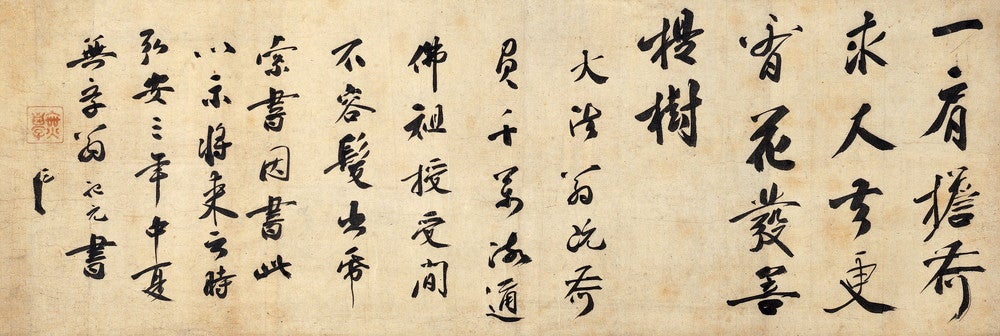 一肩擔荷
求人去更
看花發菩
提樹
大法翁既荷
負千萬流通
佛祖授受間
不容髮出帋
索書因書此
以示將來云時
弘安三年中夏
無学翁祖元書